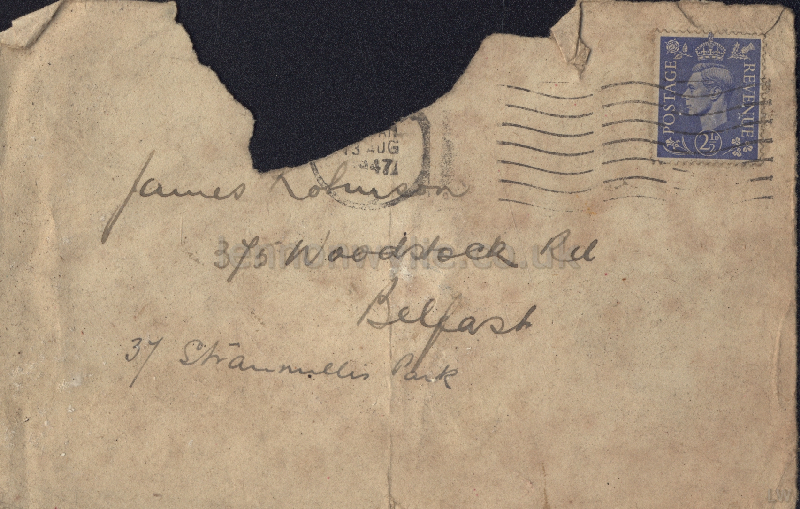 POSTAGE REVENUE
2½D
13 AUG
1947
James Robinson
375 Woodstock Rd
Belfast
37 Stranmillis Park